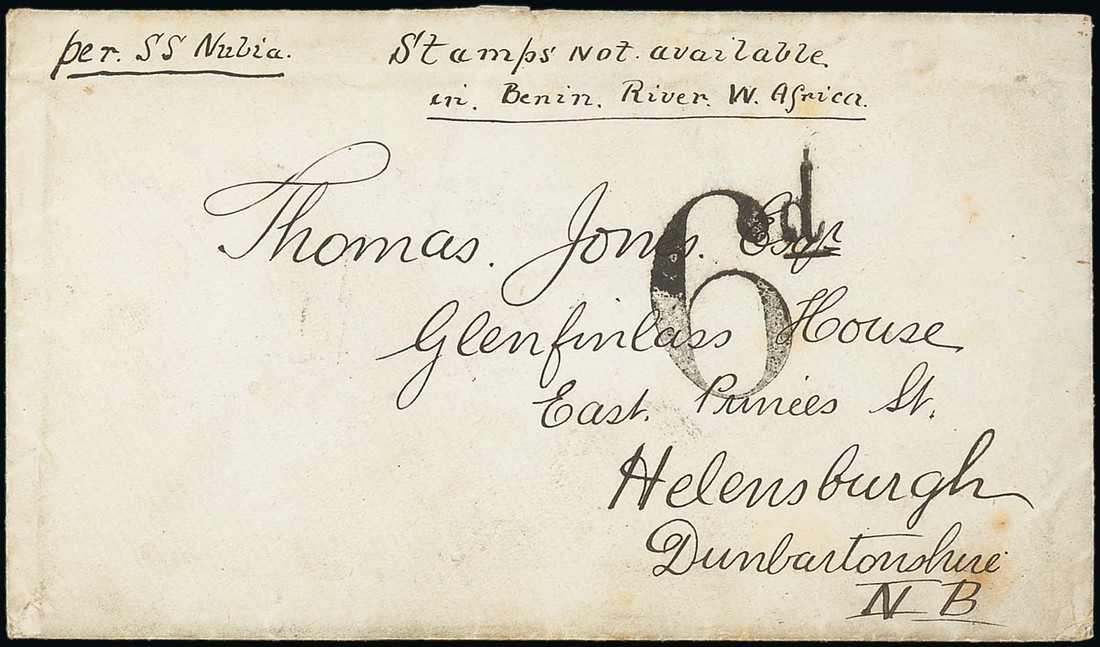 per. SS Nubia.
Stamps Not. available
in. Benin. River. W. Africa.
6d
Thomas. Jones. Esqr
Glenfinlass House
East. Princes St.
Helensburgh
Dunbartonshire
N B